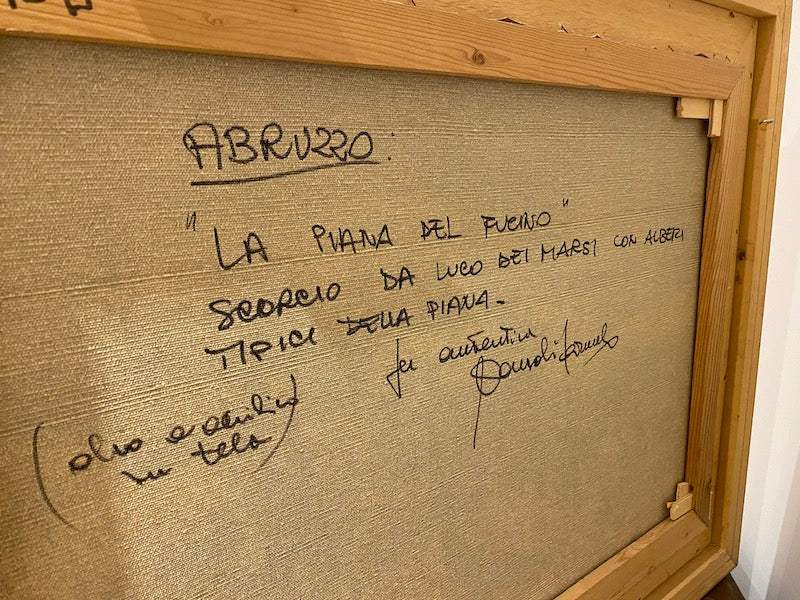 ABRUZZO:
"LA PIANA DEL FUCINO"
SCORCIO DA LUCO DEI MARSI CON ALBERI
TIPICI DELLA PIANA-
per autentica
(olio e acrilico
su tela)